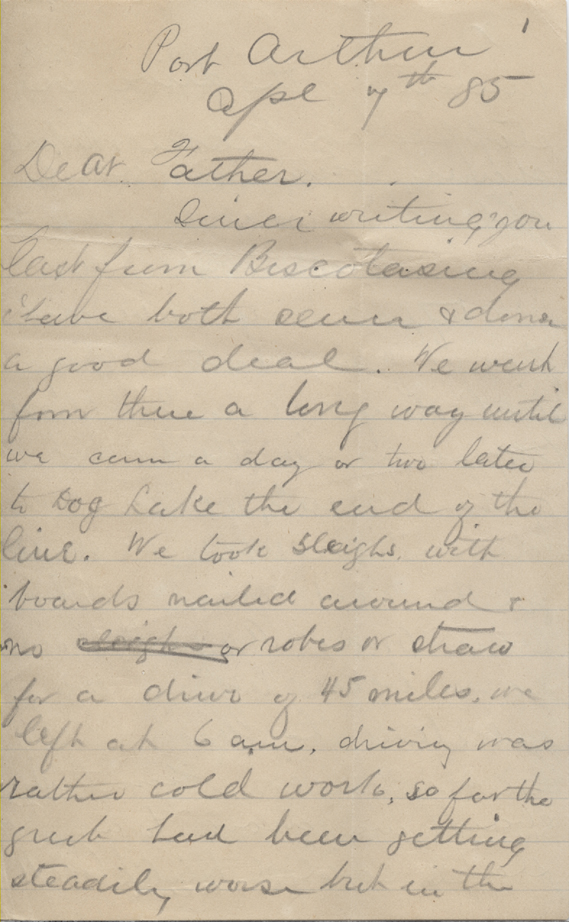 1
Port Arthur
Apl 7th 85
Dear Father.
Since writing you
last from Biscotasing
I have both seen & done
a good deal. We went
from there a long way until
we came a day or two later
to Dog Lake the end of the
line. We took sleighs with
boards nailed around &
no sleighs or robes or straw
for a drive of 45 miles. we
left at 6 a.m. driving was
rather cold work, so far the
grub had been getting
steadily worse but in the